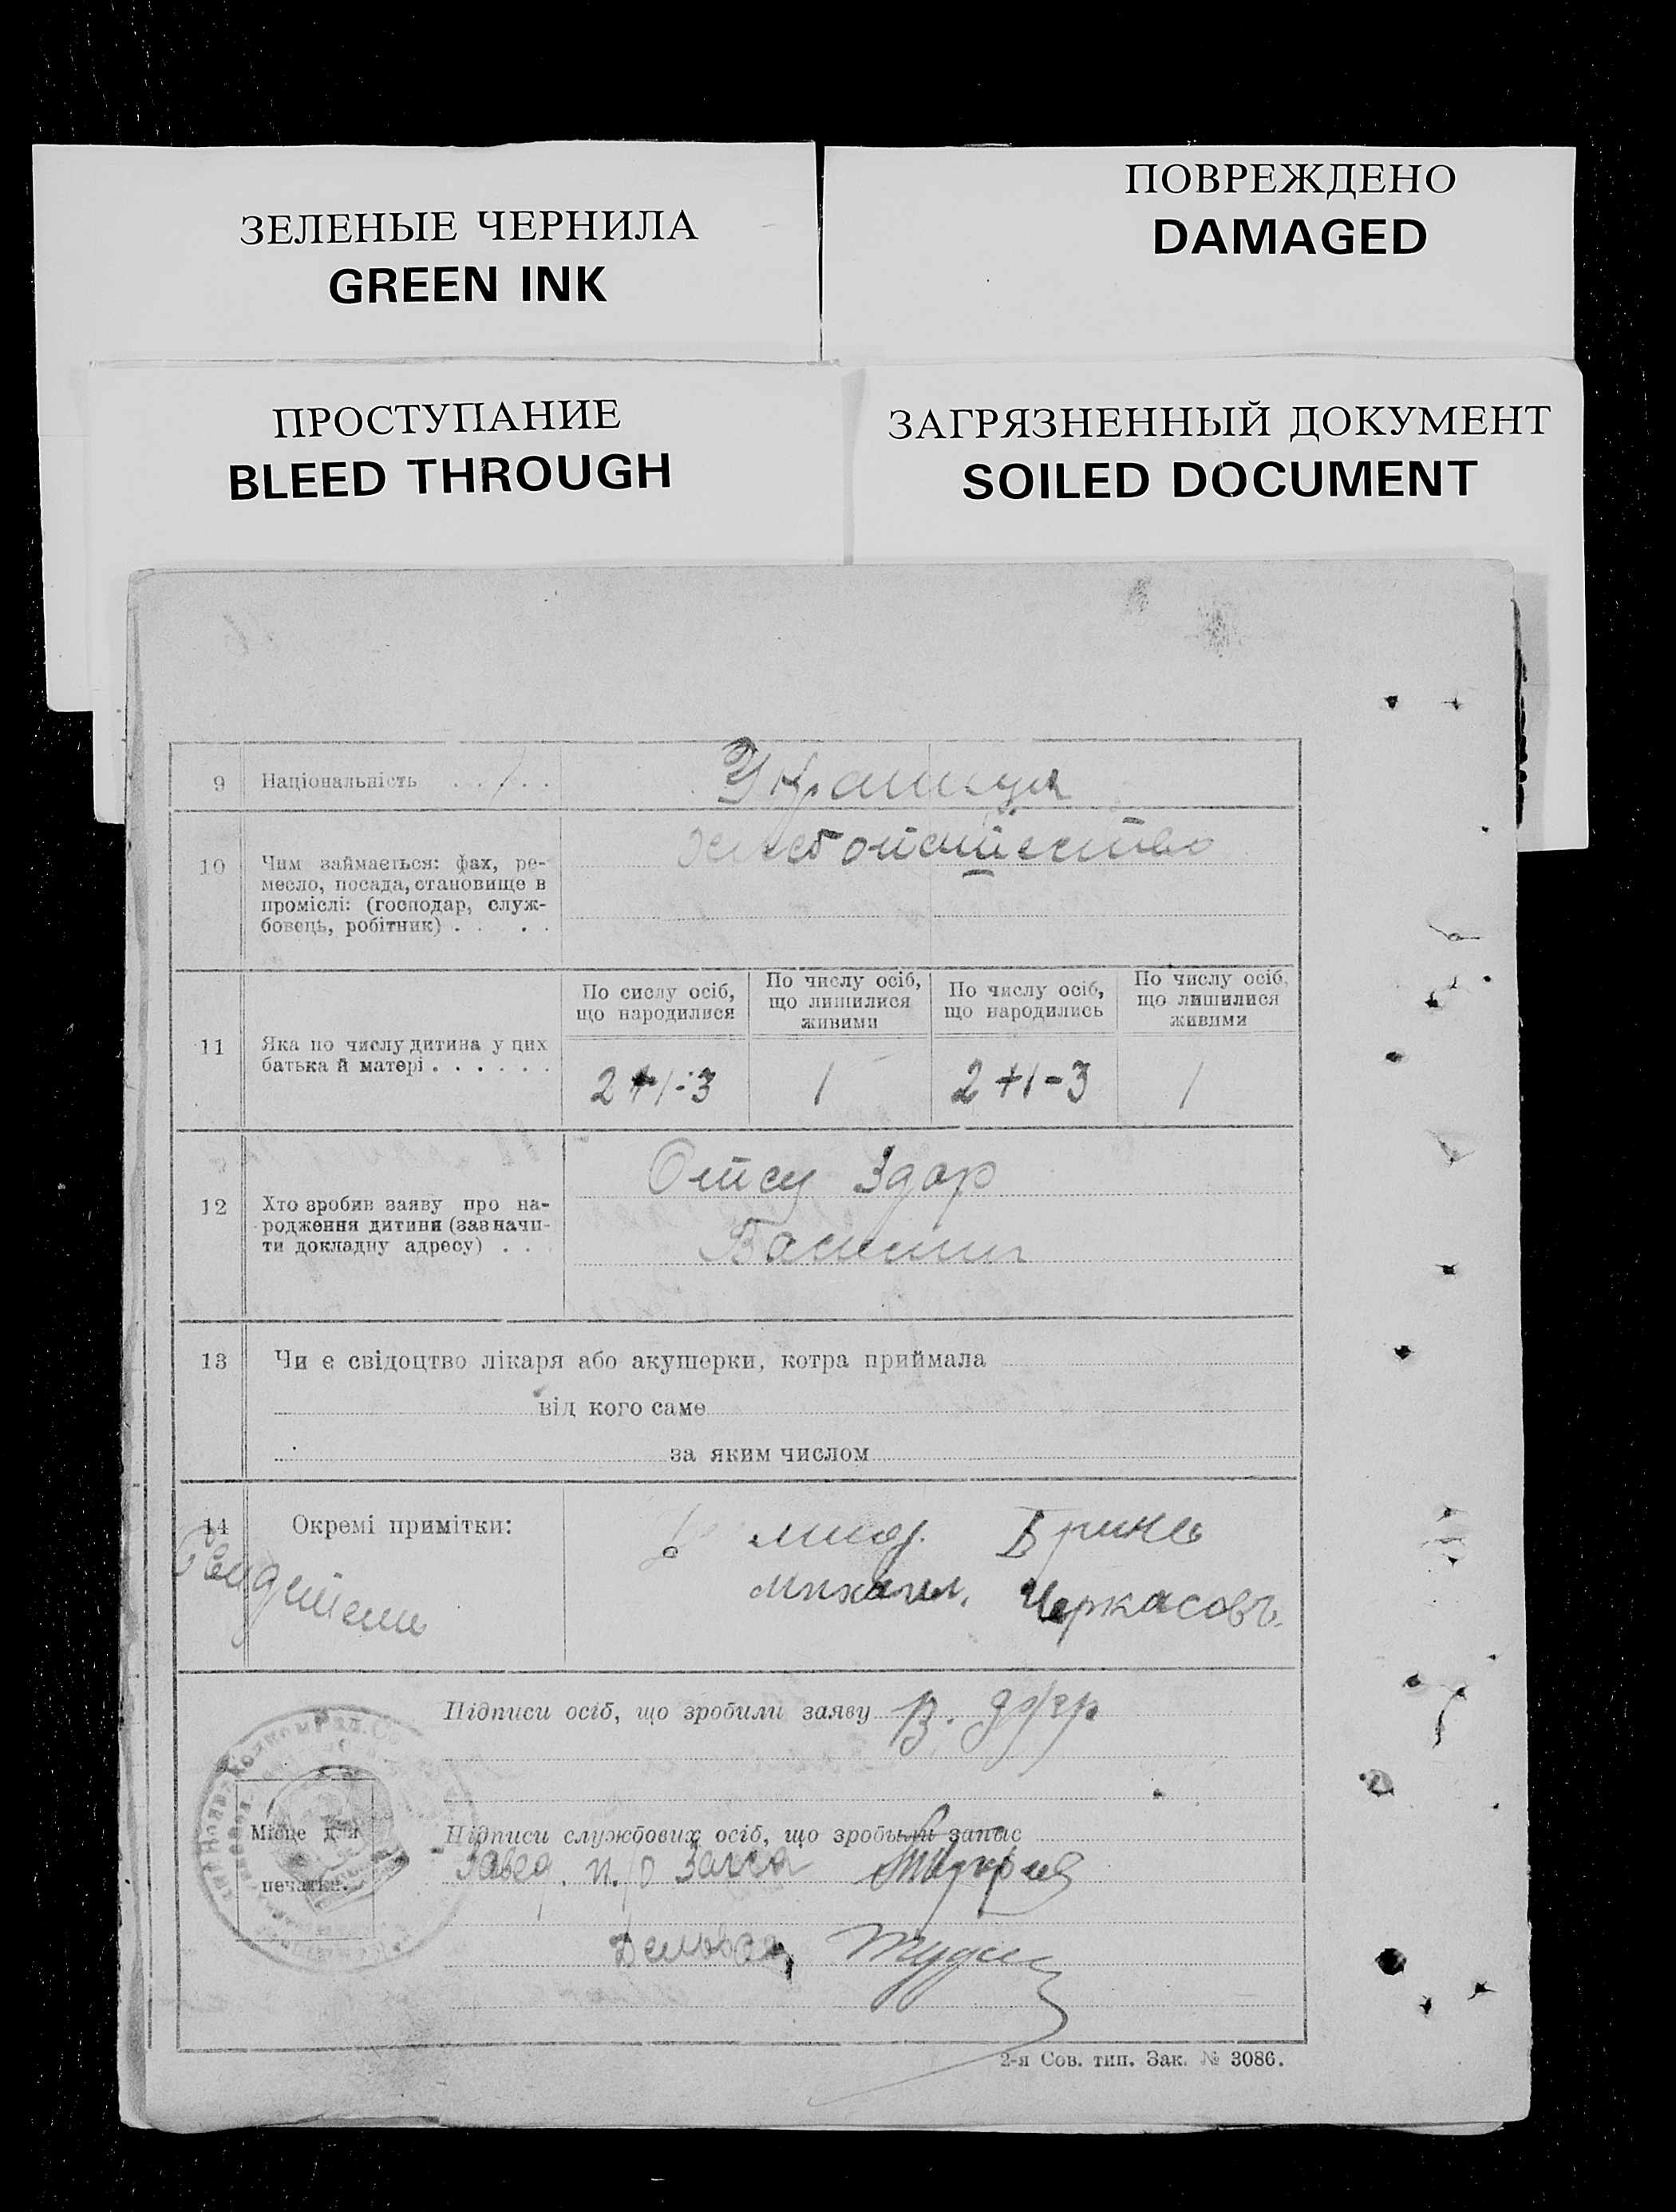 ЗЕЛЕНЫЕ ЧЕРНИЛА
GREEN INK
ПОВРЕЖДЕНО
DAMAGED
ПРОСТУПАНИЕ
BLEED THROUGH
ЗАГРЯЗНЕННЫЙ ДОКУМЕНТ
SOILED DOCUMENT
9 Національність . . . .
10 Чим займається: фах, ре-
месло, посада, становище в
проміслі: (господар, служ-
бовець, робітник) . . . .
11 Яка по числу дитина у цих
батька й матері . . . . . .
По сислу осіб,
що народилися
По числу осіб,
що лишилися
живими
По числу осіб,
що народились
По числу осіб,
що лишилися
живими
2+1-3 1 2+1-3 1
12 Хто зробив заяву про на-
родження дитини (зазначи-
ти докладну адресу) . .
Отец
13 Чи є свідоцтво лікаря або акушерки, котра приймала
від кого саме
за яким числом
14 Окремі примітки:
Михаил. Черкасовъ
Підписи осіб, що зробили заяву В.
Місце для
печатки.
Підписи службових осіб, що зробыли запис
Завед. п/о Загса
2-я Сов. тип. Зак. № 3086.